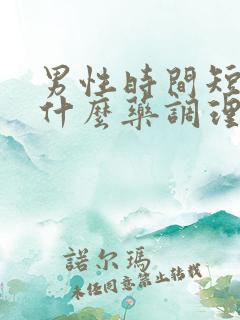 男性時間短
什麼藥調理
諾尔瑪
未經同意禁止轉載